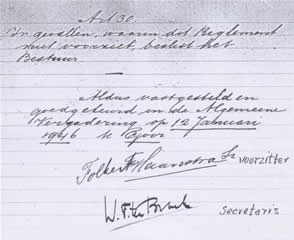 Art 30.
In gevallen, waarin dit Reglement
niet voorziet, beslist het
Bestuur.
Aldus vastgesteld en
goedgekeurd in de Algemeene
Vergadering op 12 Januari
1946 te
Folkert Sr voorzitter
W. F. te secretaris